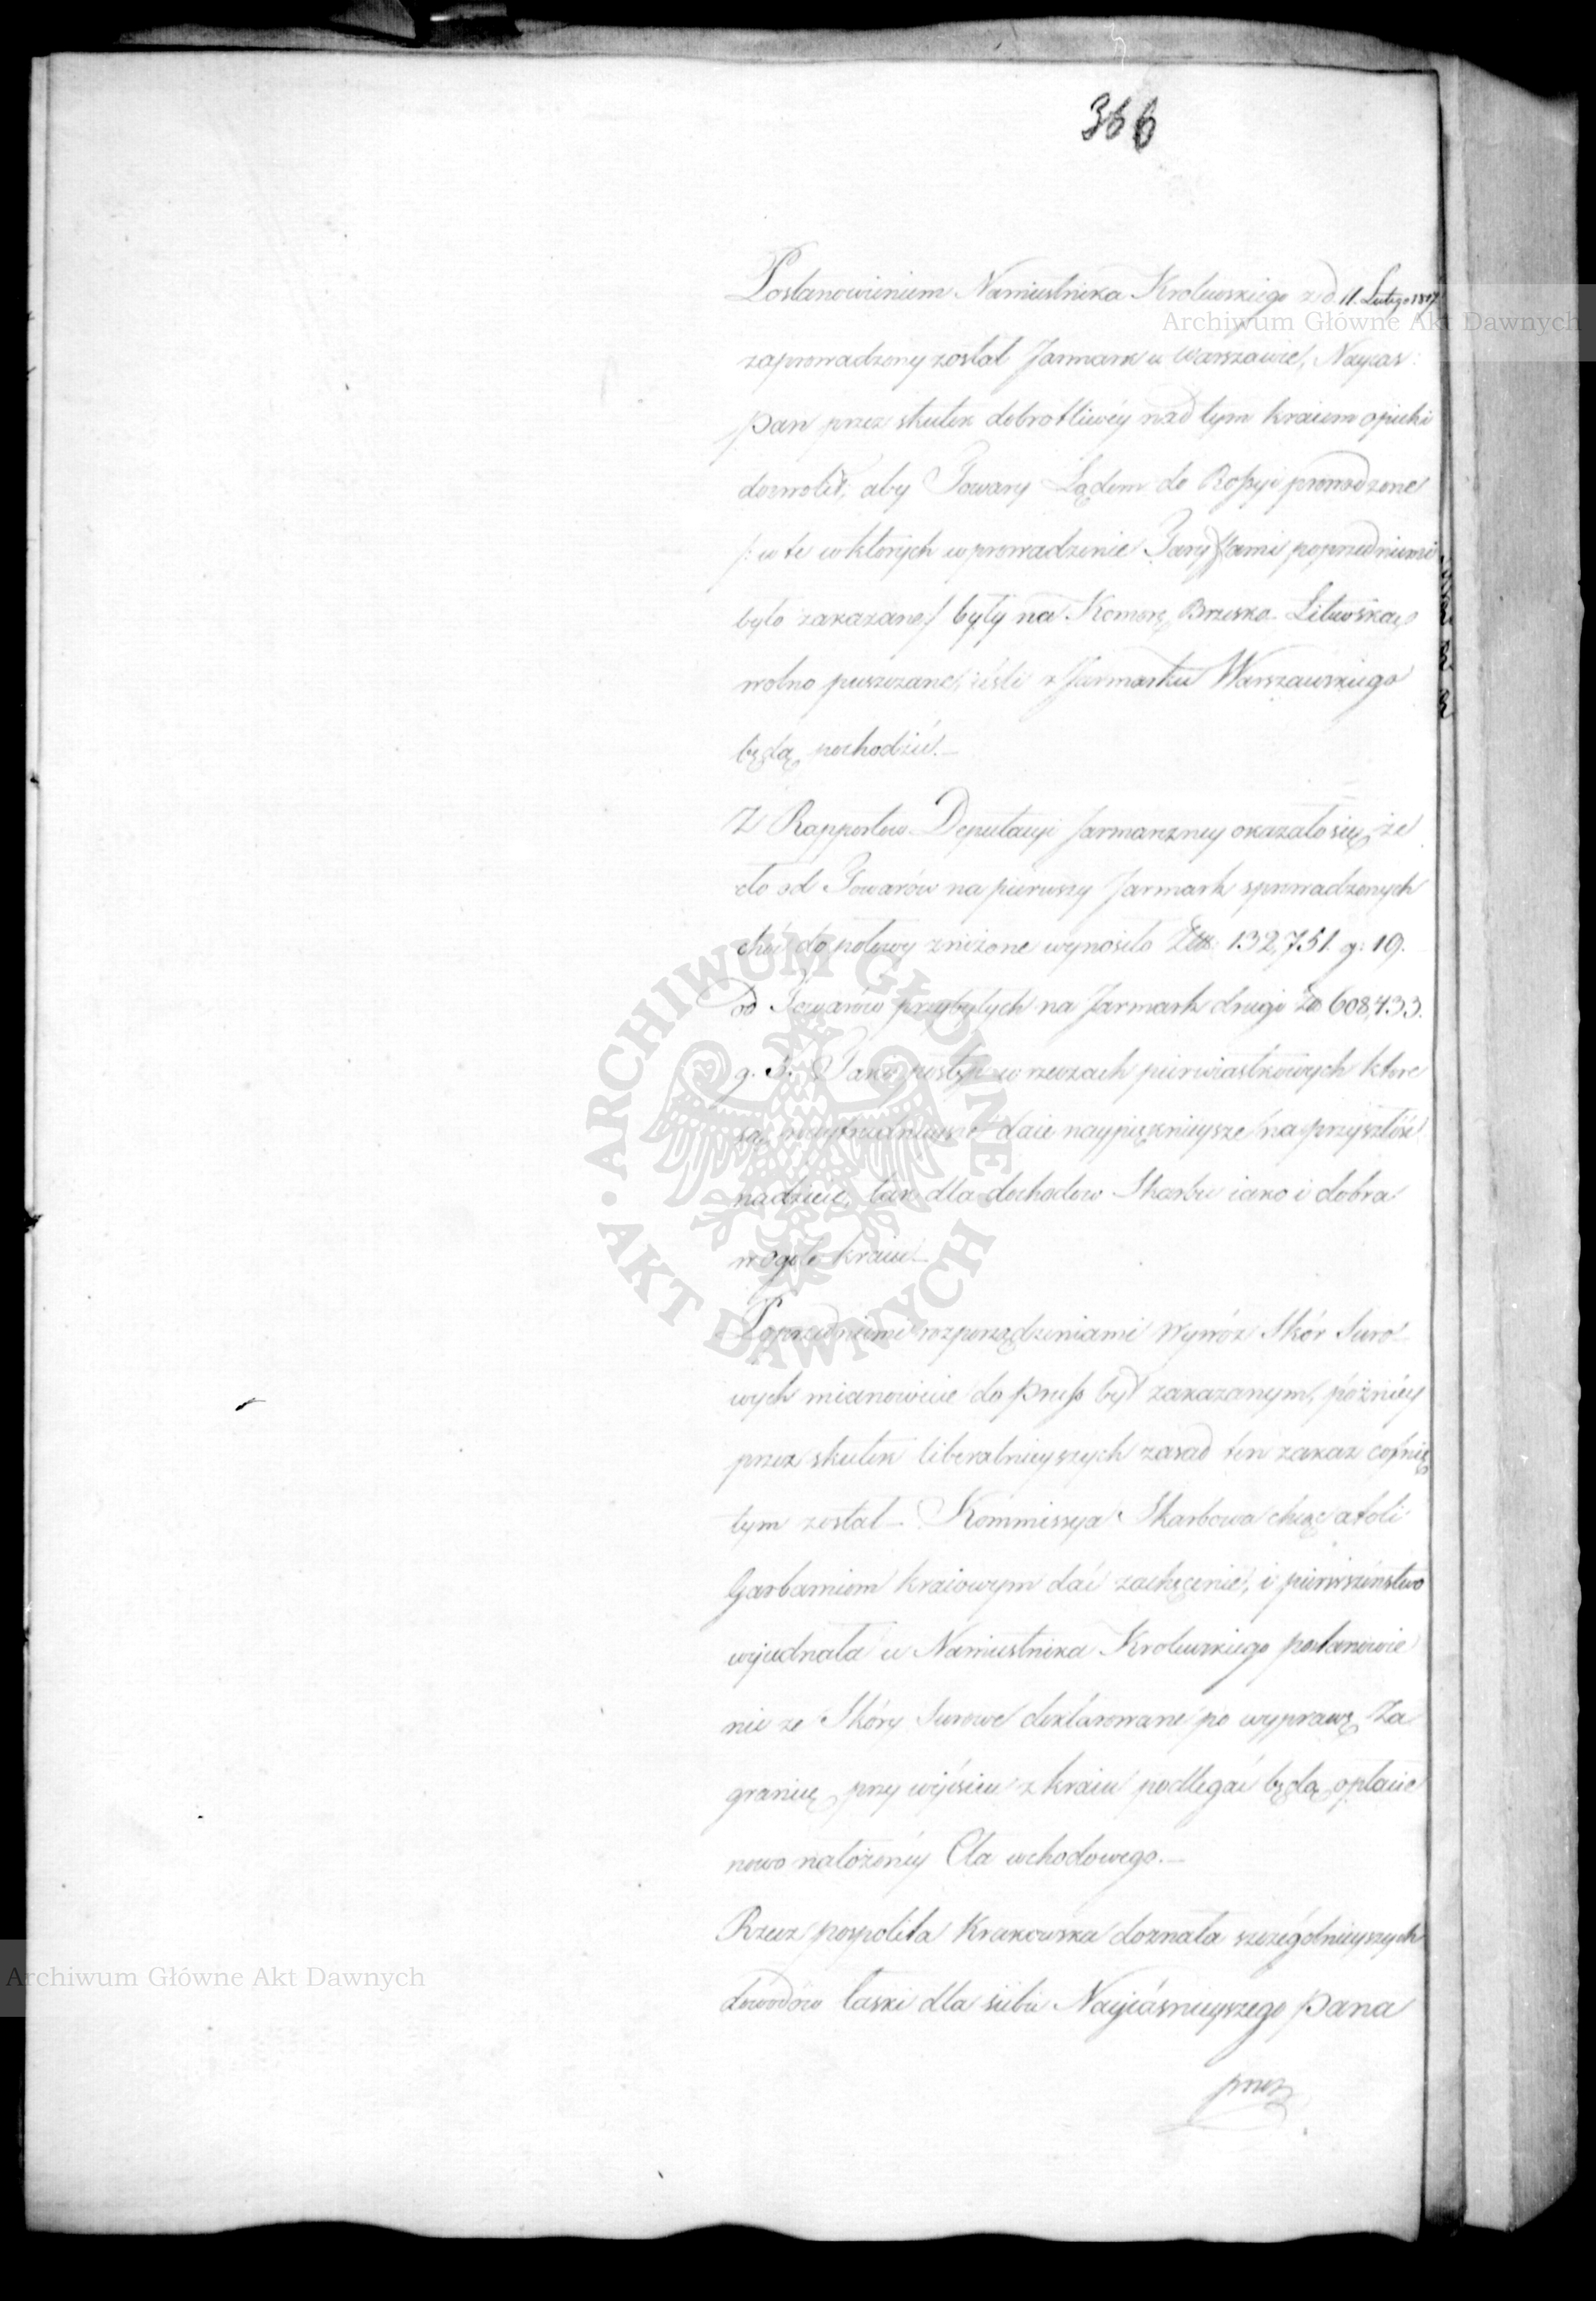 366
Postanowieniem Namiestnika Krolewskiego z d. 11. Lutego 1817
zaprowadzony został Jarmark w Warszawie, Nayias:
Pan przez skutek dobrotliwéy nad tym kraiem opieki
dozwolił, aby Towary Lądem do Rossyi prowadzone
/: w te w ktorych wprowadzenie Taryffami poprzedniemi
było zakazane/ były na Komorę Brzesko-Litewską
wolno puszczane, ieśli z Jarmarku Warszawskiego
będą pochodzić.—
Z Rapportow Deputacyi Jarmarczney okazało się że
cło od Towarów na pierwszy Jarmark sprowadzonych
choć do połowy zniżone wynosiło Złł: 132,751. g: 19.
od Towarów przybyłych na Jarmark drugi Zł 608,433.
g. 3. Taki postęp w rzeczach pierwiastkowych ktore
są naytrudnieysze daie naypięknieysze na przyszłość
nadzieie, tak dla dochodow Skarbu iako i dobra
w ogóle kraiu.—
Poprzedniemi rozporządzeniami wywóz Skór Suro-
wych mianowicie do Pruss był zakazanym, późniéy
przez skutek liberalnieyszych zasad ten zakaz cofnię
tym został — Kommissya Skarbowa chcąc atoli
Garbarniom kraiowym dać zachęcenie, i pierwszeństwo
wyiednała u Namiestnika Krolewskiego postanowie
nie ze Skóry Surowe deklarowane po wyprawę Za
granicę, przy wyiściu z kraiu podlegać będą opłacie
nowo nałożonéy Cła wchodowego.—
Rzecz pospolita Krakowska doznała szczególnieyszych
dowodów łaski dla siebie Nayiaśnieyszego Pana
przez
Archiwum Główne Akt Dawnych
Archiwum Główne Akt Dawnych
ARCHIWUM GŁÓWNE • AKT DAWNYCH •